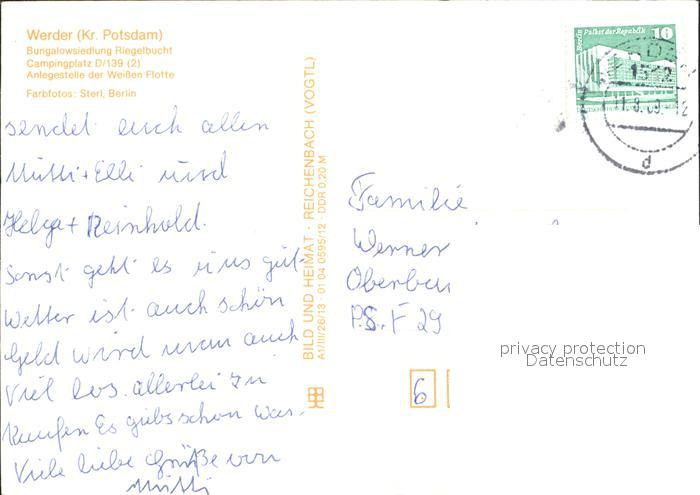 Werder (Kr. Potsdam)
Bungalowsiedlung Riegelbucht
Campingplatz D/139 (2)
Anlegestelle der Weißen Flotte
Farbfotos: Sterl, Berlin
sendet euch allen
Mutti + Elli und
Helga + Reinhold.
Sonst geht es uns gut
Wetter ist auch schön
Geld wird man auch
Viel los. allerlei zu
Kaufen Es gibs schon was.
Viele liebe Grüße von
Mutti
BILD UND HEIMAT · REICHENBACH (VOGTL)
A1/III/26/13 01 04 0595/12 · DDR 0,20 M
Berlin Palast der Republik 10
d
Familie
Werner
P.S. F 29
6
privacy protection
Datenschutz